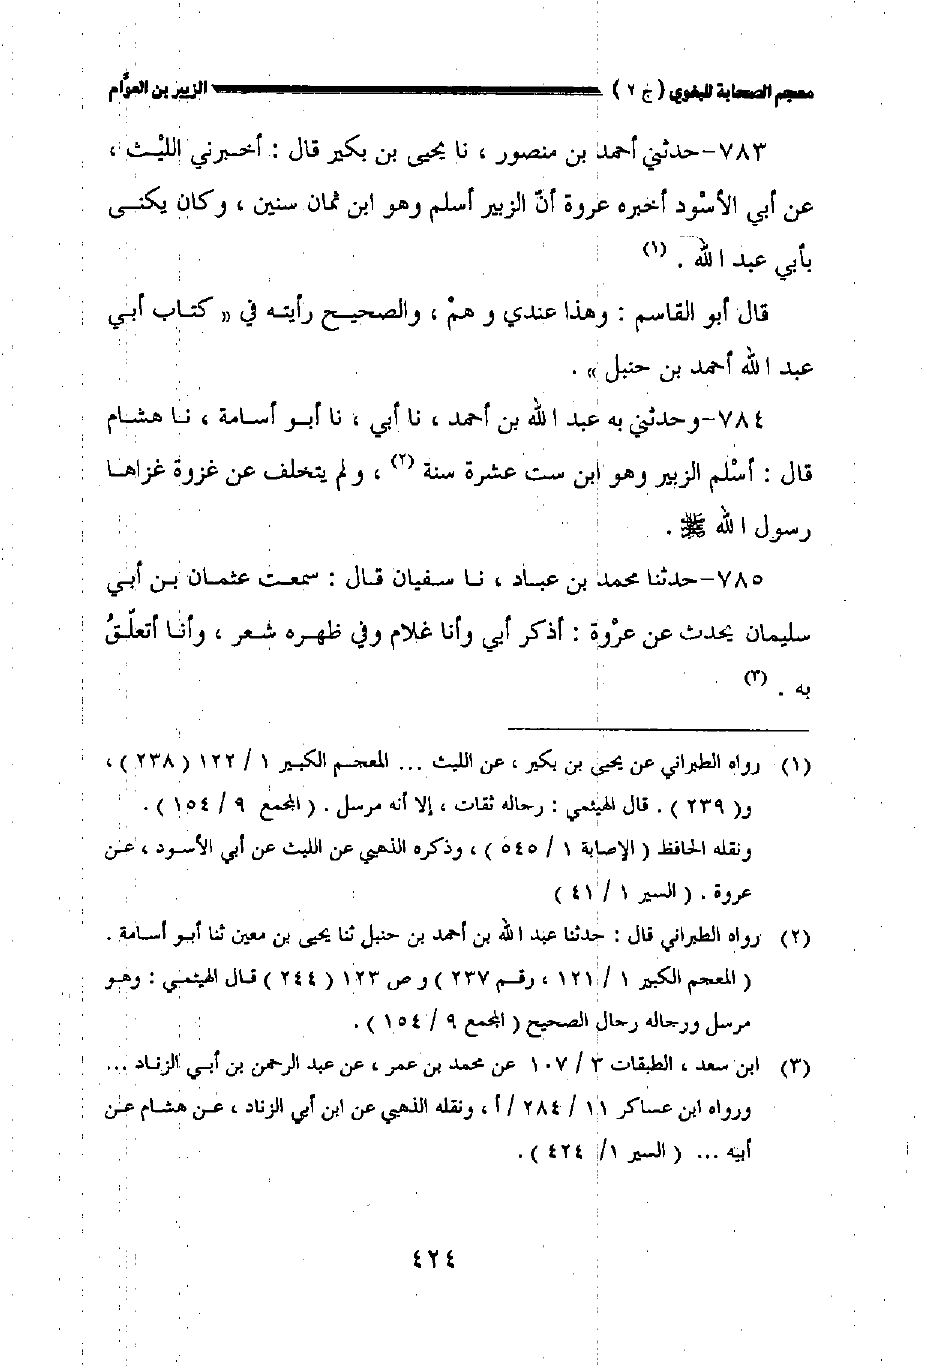 معجم الصحابة للبغوي ( ج ٢ ) الزبير بن العوَّام
٧٨٣-حدثني أحمد بن منصور ، نا يحيى بن بكير قال : أخبرني الليْث ،
عن أبي الأسْود أخبره عروة أنّ الزبير أسلم وهو ابن ثمان سنين ، وكان يكنى
بأبي عبد الله . (١)
قال أبو القاسم : وهذا عندي وهمْ ، والصحيح رأيته في « كتاب أبي
عبد الله أحمد بن حنبل » .
٧٨٤-وحدثني به عبد الله بن أحمد ، نا أبي ، نا أبو أسامة ، نا هشام
قال : أسْلم الزبير وهو ابن ست عشرة سنة (٢) ، ولم يتخلف عن غزوة غزاها
رسول الله ﷺ .
٧٨٥-حدثنا محمد بن عباد ، نا سفيان قال : سمعت عثمان بن أبي
سليمان يحدث عن عرْوة : أذكر أبي وأنا غلام وفي ظهره شعر ، وأنا أتعلّقُ
به . (٣)
(١) رواه الطبراني عن يحيى بن بكير ، عن الليث ... المعجم الكبير ١ / ١٢٢ ( ٢٣٨ ) ،
و( ٢٣٩ ) . قال الهيثمي : رجاله ثقات ، إلا أنه مرسل . ( المجمع ٩ / ١٥٤ ) .
ونقله الحافظ ( الإصابة ١ / ٥٤٥ ) ، وذكره الذهبي عن الليث عن أبي الأسود ، عن
عروة . ( السير ١ / ٤١ )
(٢) رواه الطبراني قال : حدثنا عبد الله بن أحمد بن حنبل ثنا يحيى بن معين ثنا أبو أسامة .
( المعجم الكبير ١ / ١٢١ ، رقم ٢٣٧ ) و ص ١٢٣ ( ٢٤٤ ) قال الهيثمي : وهو
مرسل ورجاله رجال الصحيح ( المجمع ٩ / ١٥٤ ) .
(٣) ابن سعد ، الطبقات ٣ / ١٠٧ عن محمد بن عمر ، عن عبد الرحمن بن أبي الزناد ...
ورواه ابن عساكر ١١ / ٢٨٤ / أ ، ونقله الذهبي عن ابن أبي الزناد ، عن هشام عن
أبيه ... ( السير ١/ ٤٢٤ ) .
٤٢٤